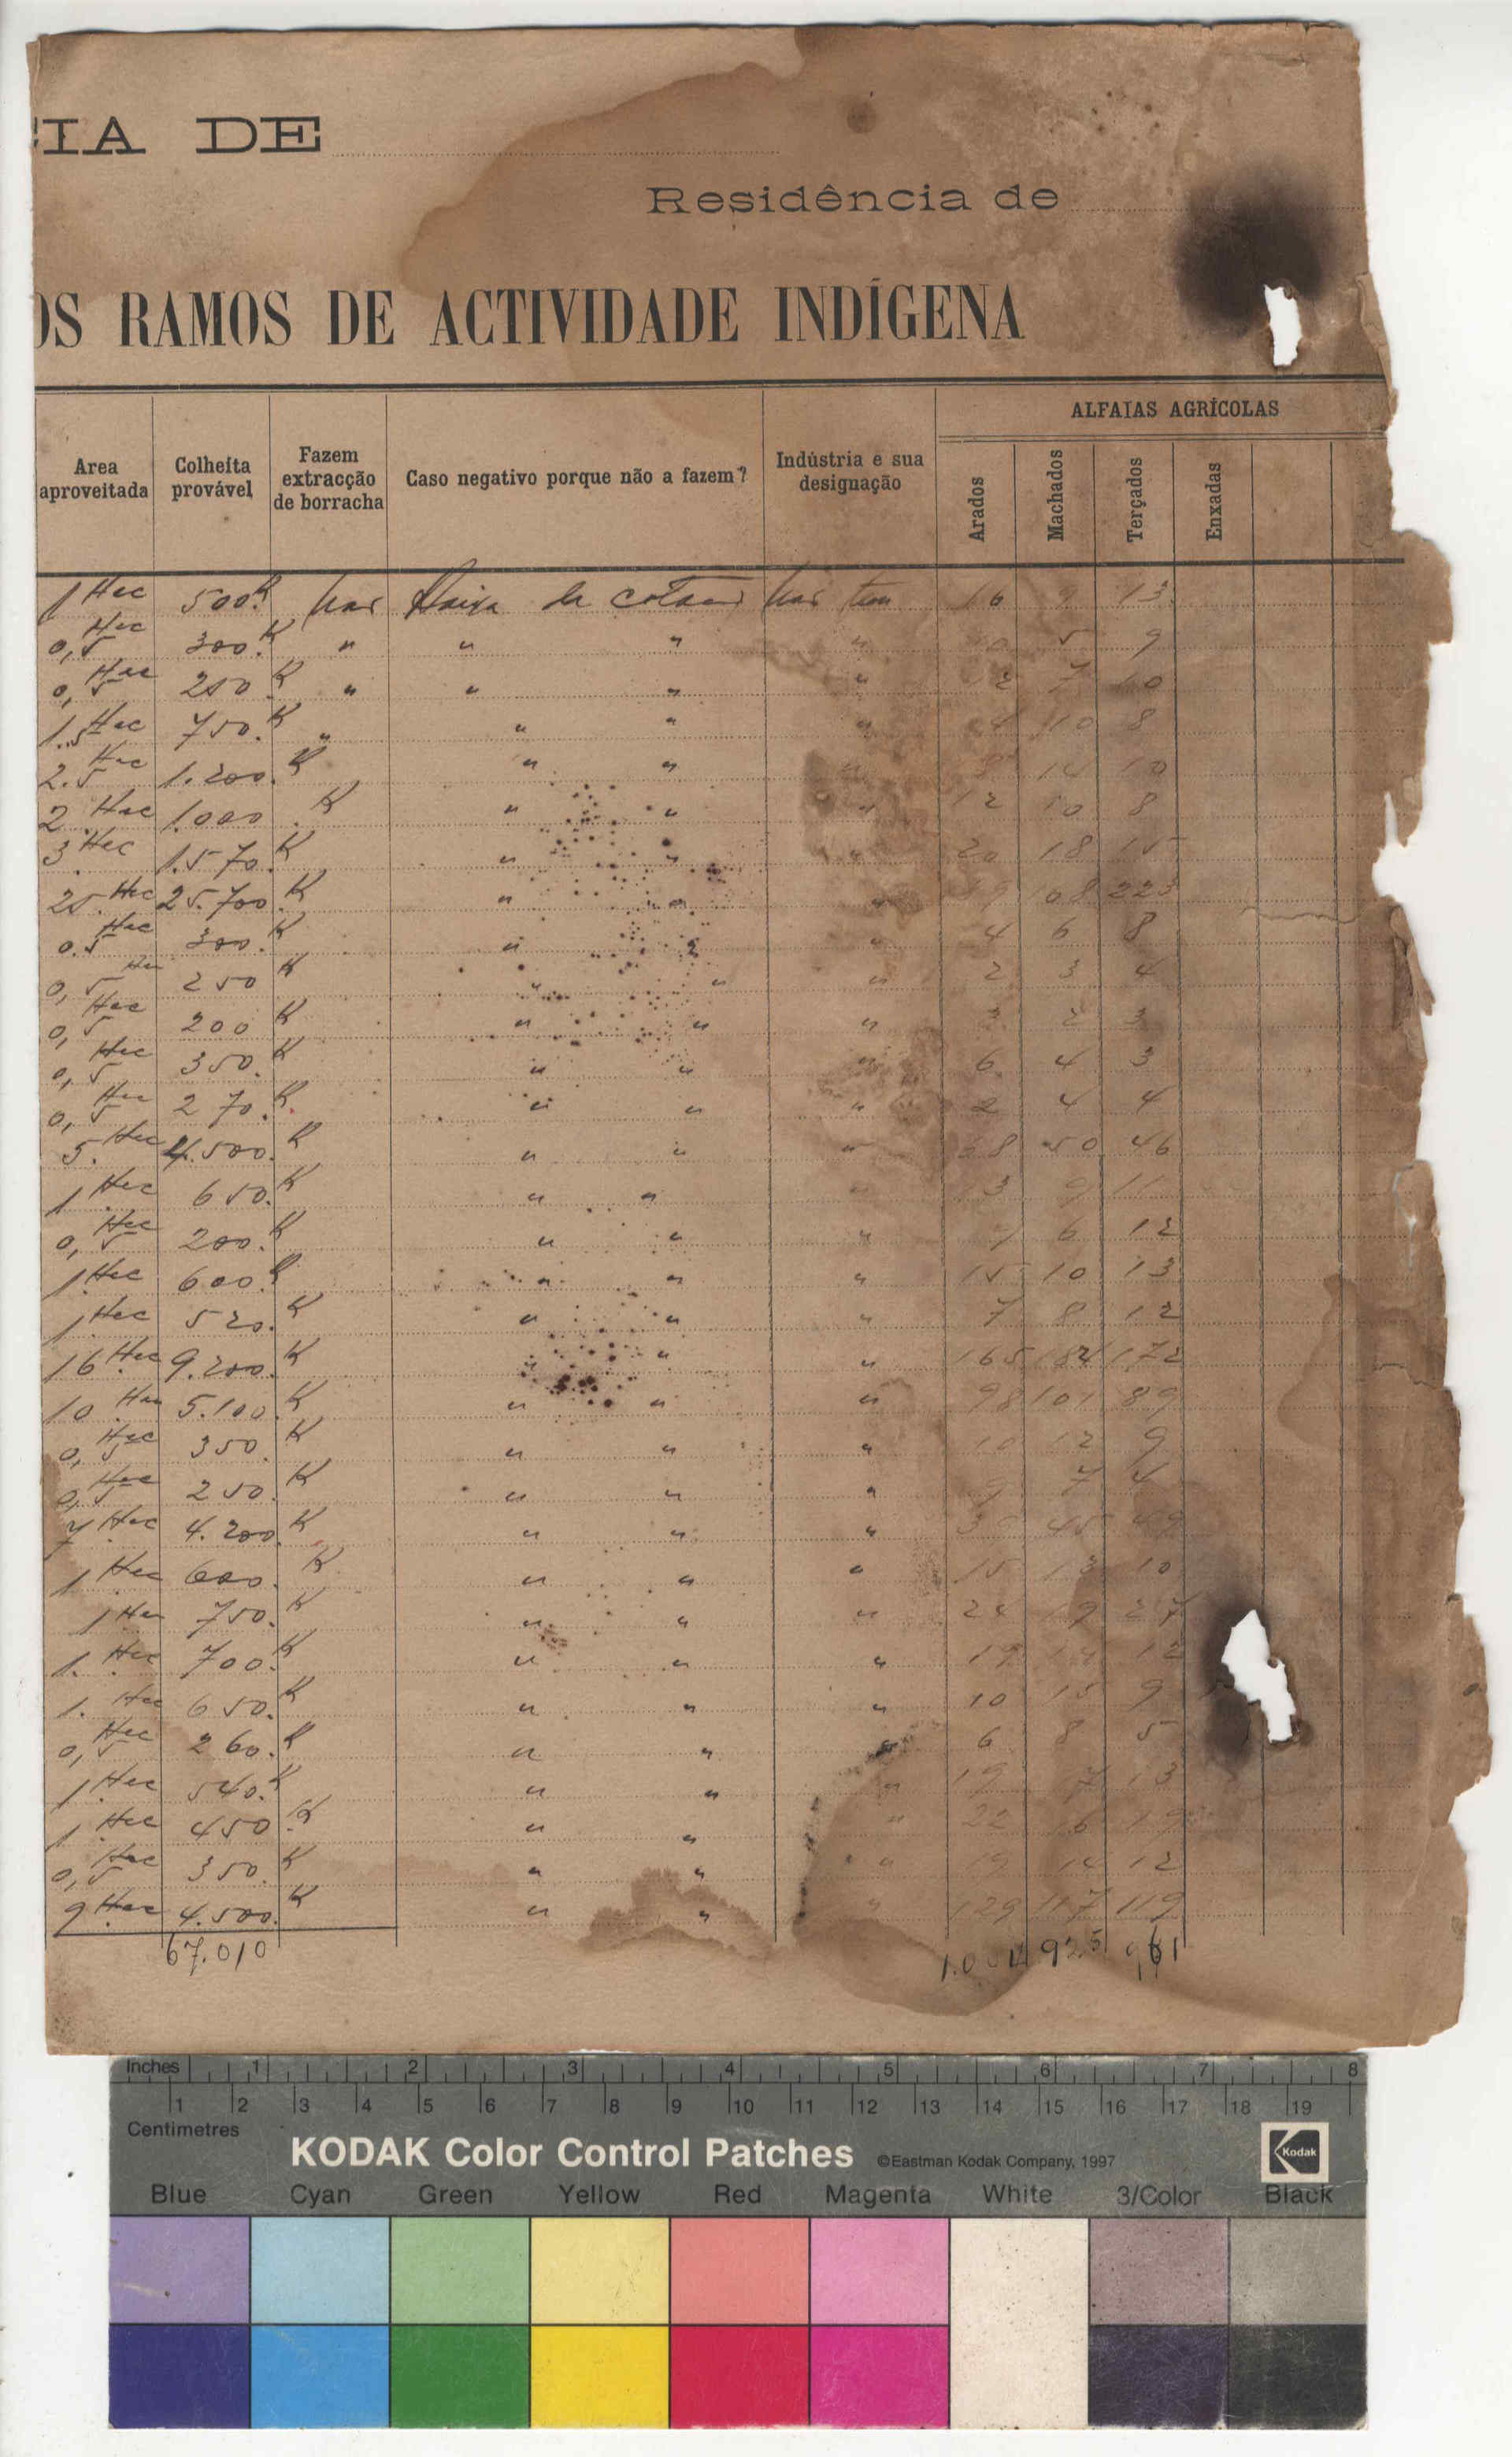 CIA DE
Residência de
OS RAMOS DE ACTIVIDADE INDÍGENA
Area aproveitada | Colheita provável | Fazem extracção de borracha | Caso negativo porque não a fazem? | Indústria e sua designação | ALFAIAS AGRÍCOLAS
Arados | Machados | Terçados | Enxadas
1 Hec 500.K da 16 9 13
0,5 Hec 300.K " " " " 5 9
0,5 Hec 250.K " " " " 12 7 10
1.5 Hec 750.K " " " " 4 10 8
2.5 Hec 1.200.K " " " 14 10
2 Hec 1.000.K " " " 12 10 8
3 Hec 1.570.K " " " 20 18 15
25 Hec 25.700.K " " " 108 223
0.5 Hec 300.K " " 4 6 8
0,5 Hec 250 K " " " 2 3 4
0,5 Hec 200 K " " " 2 3
0,5 Hec 350.K " " " 6 4 3
0,5 Hec 270.K " " " 2 4 4
5. Hec 4.500.K " " " 58 50 46
1 Hec 650.K " " " 13 9 11
0,5 Hec 200.K " " " 6 12
1 Hec 600.K " " " 15 10 13
1 Hec 520.K " " " 7 8 12
16 Hec 9.200.K " " " 165 184 172
10 Hec 5.100.K " " " 98 101 89
0,5 Hec 350.K " " " 10 12 9
0,5 Hec 250.K " " " 9 7 4
7 Hec 4.200.K " " " 45 49
1 Hec 600.K " " " 15 13 10
1 Hec 750.K " " " 24 19 27
1. Hec 700.K " " " 19 14 12
1. Hec 650.K " " " 10 15 9
0,5 Hec 260.K " " 6 8 5
1 Hec 540.K " " " 19 17 13
1 Hec 450.K " " " 22 16 19
0,5 Hec 350.K " " " 19 14 12
9 Hec 4.500.K " " " 129 117 119
67.010 925
Inches 1 2 3 4 5 6 7 8
1 2 3 4 5 6 7 8 9 10 11 12 13 14 15 16 17 18 19
Centimetres
KODAK Color Control Patches ©Eastman Kodak Company, 1997 Kodak
Blue Cyan Green Yellow Red Magenta White 3/Color Black